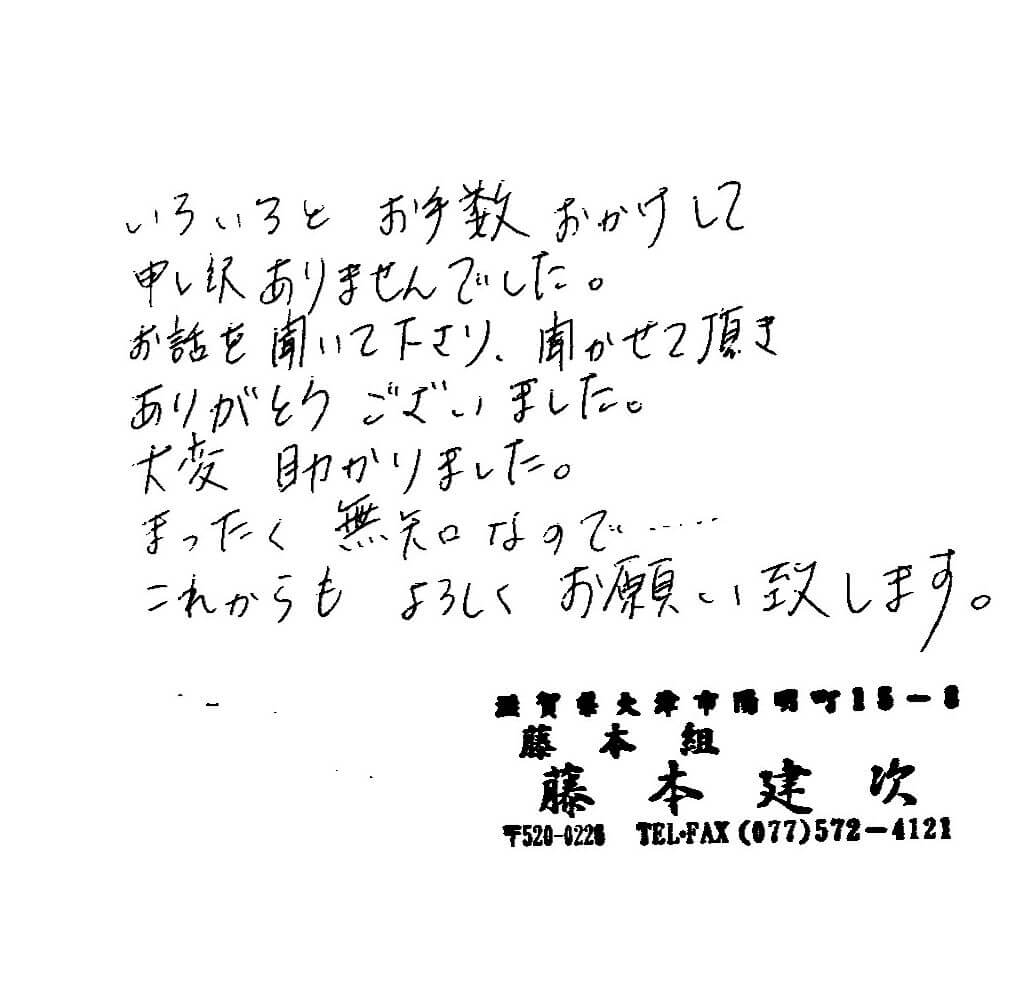 いろいろと お手数 おかけして
申し訳ありませんでした。
お話を聞いて下さり、聞かせて頂き
ありがとう ございました。
大変 助かりました。
まったく 無知なので……
これからも よろしく お願い致します。
滋賀県大津市陽明町15-8
藤本組
藤本建次
〒520-0226 TEL・FAX(077)572-4121